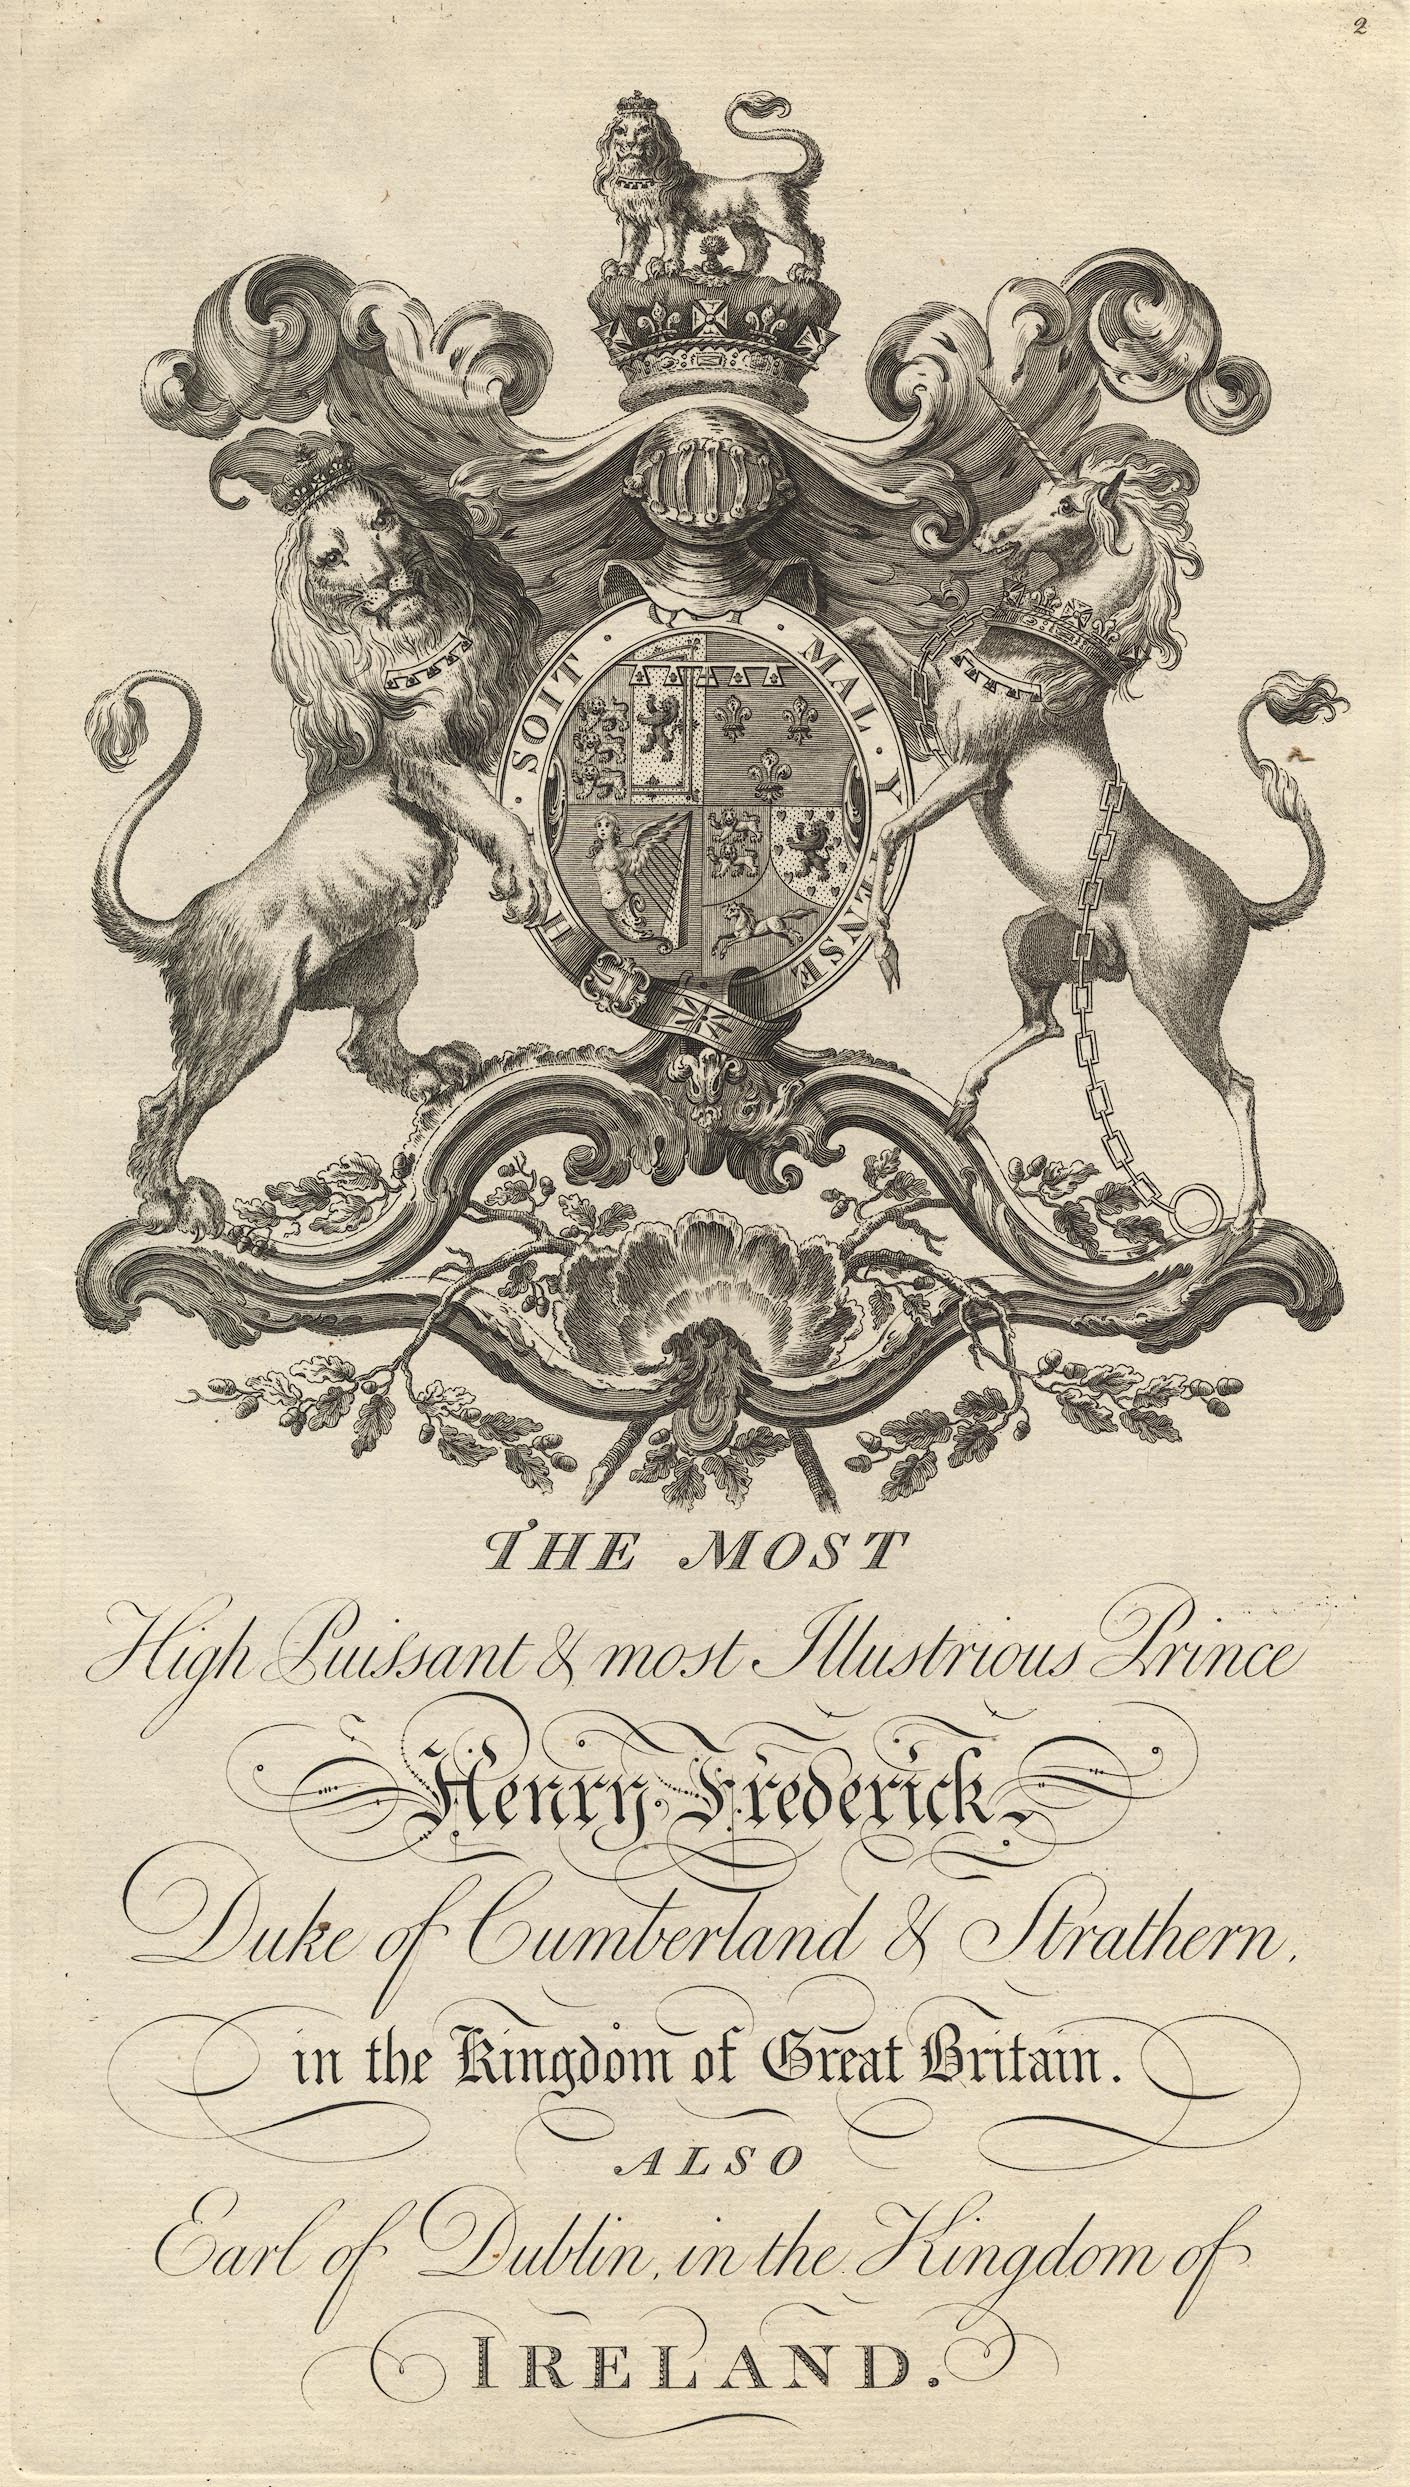 2
HONI · SOIT · QUI · MAL · Y · PENSE
THE MOST
High Puissant & most Illustrious Prince
Henry Frederick
Duke of Cumberland & Strathern,
in the Kingdom of Great Britain.
ALSO
Earl of Dublin, in the Kingdom of
IRELAND.